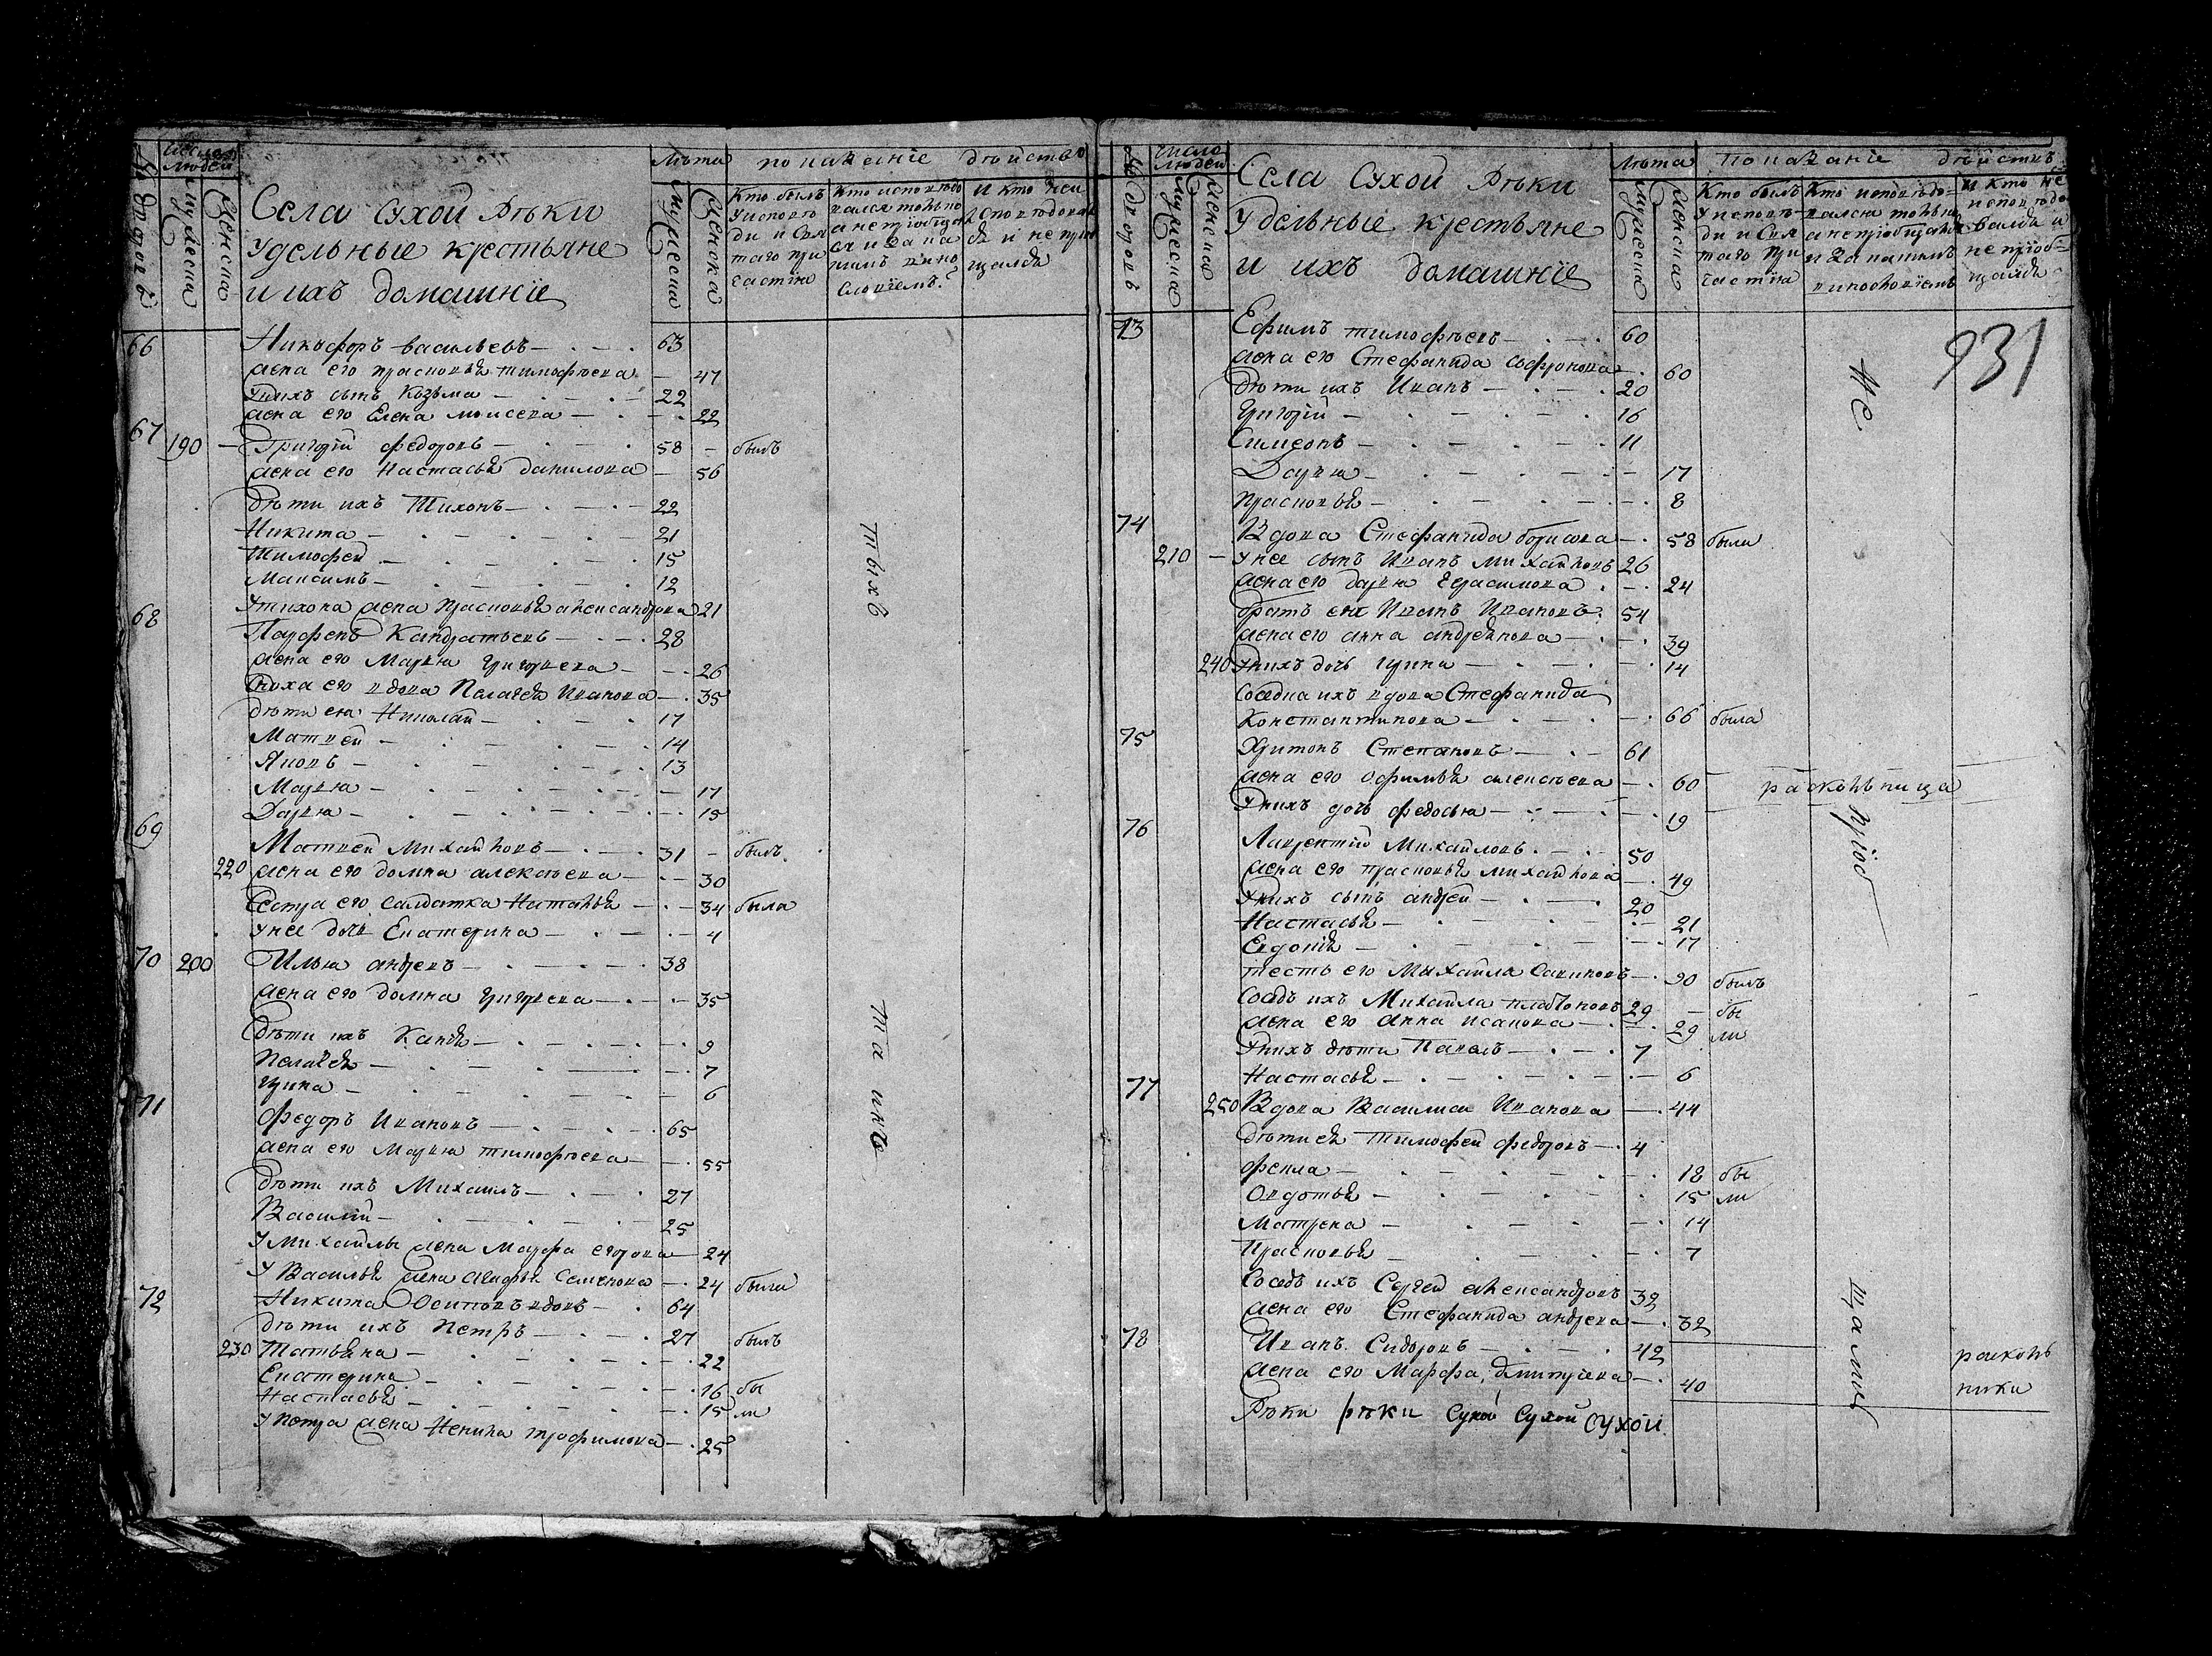 № дворовъ
Число людей
Мужеска
Женска
Села Сухой Рѣки
Удельные крестьяне
и ихъ домашніе
Лѣта
Мужеска
Женска
показаніе дѣйства
Кто былъ у исповѣди и Святаго причастія
Кто исповѣдовался токмо а непріобщался и за какимъ винословіемъ
И кто неисповѣдовался и не пріобщался
66 Никифоръ Васильевъ 63
жена его Прасковья Тимофѣева 47
У нихъ сынъ Козьма 22
жена его Елена Моисеева 22
67 190 Григорій Федоровъ 58 былъ
жена его Настасья Данилова 56
дѣти ихъ Тихонъ 22
Никита 21
Тимофей 15
Максимъ 12
У Тихона жена Прасковья Александрова 21
68 Парфенъ Кандратьевъ 28
жена его Марья Григорьева 26
сноха его вдова Пелагея Иванова 35
дѣти ея Николай 17
Матвей 14
Яковъ 13
Марья 17
Дарья 15
69 Матвей Михайловъ 31 былъ
220 жена его Домна Алексѣева 30
Сестра его салдатка Наталья 34 была
У нее дочь Екатерина 4
70 200 Илья Андреевъ 38
жена его Домна Григорьева 35
дѣти ихъ 9
Пелагея 7
Ирина 6
71 Федоръ Ивановъ 65
жена его Марья Тимофѣева 55
дѣти ихъ Михаилъ 27
Василій 25
У Михайлы жена Марфа Егорова 24
У Василья жена Семенова 24 были
72 Никита Осиповъ вдовъ 64
дѣти ихъ Петръ 27 былъ
230 Татьяна 22
Екатерина 16 бы
Настасья 15 ли
У Петра жена Ненила Трофимова 25
тѣхъ
таинѣ
№ дворовъ
Число людей
Мужеска
Женска
Села Сухой Рѣки
Удельные крестьяне
и ихъ домашніе
Лѣта
Мужеска
Женска
Показаніе дѣйствъ
Кто былъ у исповѣди и Святаго причастія
Кто исповѣдовался токмо а непріобщался и за какимъ винословіемъ
и кто не исповѣдовался и не пріобщался
931
73 Ефимъ Тимофѣевъ 60
жена его Стефанида Софронова 60
дѣти ихъ Иванъ 20
Григорій 16
Симеонъ 11
Дарья 17
Прасковья 8
74 Вдова Стефанида Борисова 58 были
210 У нее сынъ Иванъ Михайловъ 26
жена его Дарья Герасимова 24
братъ ея Иванъ Ивановъ 54
жена его Анна Андреянова 39
240 У нихъ дочь Ирина 14
Соседка ихъ вдова Стефанида
Константинова 66 была
75 Харитонъ Степановъ 61
жена его Офимья Алексѣева 60 раскольница
У нихъ дочь Федосья 19
76 Лаврентій Михайловъ 50
жена его Прасковья Михайлова 49
У нихъ сынъ Андрей 20
Настасья 21
Евдокія 17
тесть его Михайла Савиновъ 90 былъ
Соседъ ихъ Михайла Платоновъ 29 бы
жена его Анна Исакова 29 ли
У нихъ дѣти Павелъ 7
Настасья 6
77 250 Вдова Василиса Иванова 44
дѣти ея Тимофей Федоровъ 4
Фекла 18 бы
Овдотья 15 ли
Матрена 14
Прасковья 7
Соседъ ихъ Сергей Александровъ 32
жена его Стефанида Андреева 32
78 Иванъ Сидоровъ 42 расколь
жена его Марфа Дмитріева 40 ники
Рѣки рѣки Сухой Сухой Сухой
не
пріоб
щались